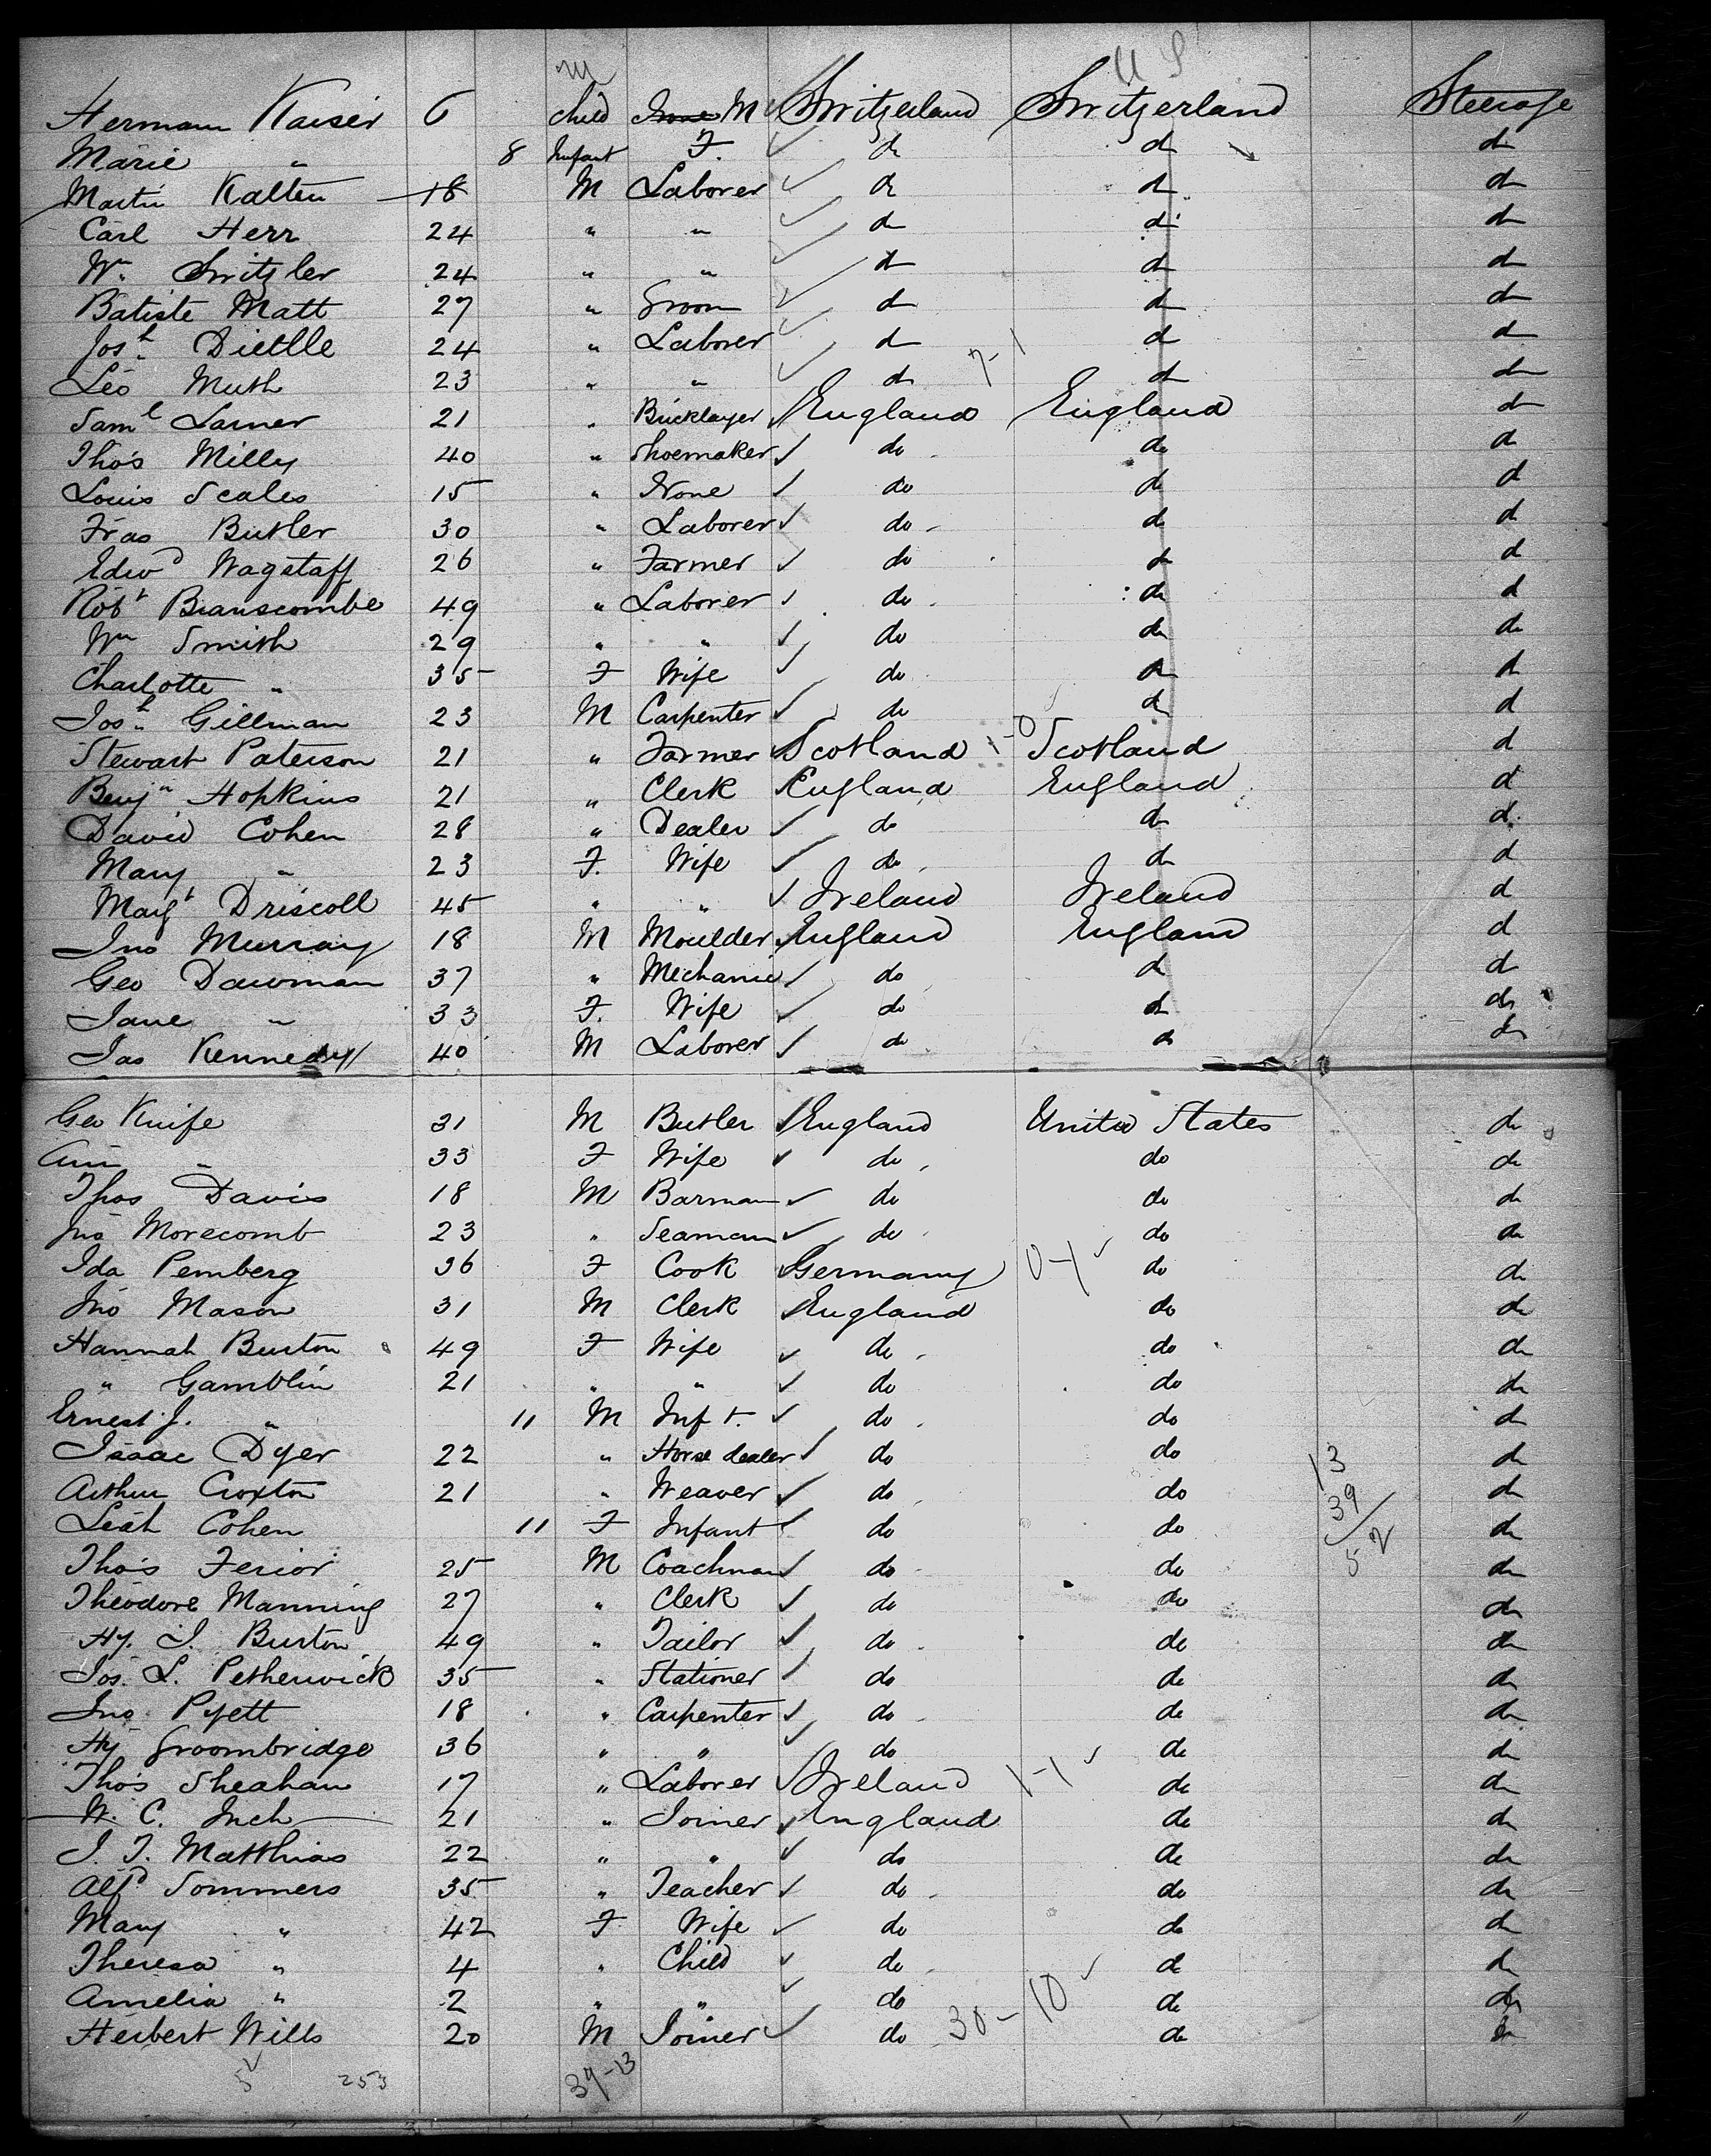 M U S
Hermann Kaiser 6 child None M Switzerland Switzerland Steerage
Marie " 8 Infant F. do do do
Martin Kalten 18 M Laborer do do do
Carl Herr 24 " " do do do
Wm Switzler 24 " " do do do
Batiste Matt 27 " Groom do do do
Josh Dietlle 24 " Laborer do do do
Leo Muth 23 " " do 7-1 do do
Saml Larner 21 " Bricklayer England England do
Thos Milly 40 " Shoemaker do do do
Louis Scales 15 " None do do do
Fras Butler 30 " Laborer do do do
Edwd Wagstaff 26 " Farmer do do do
Robt Branscombe 49 " Laborer do do do
Wm Smith 29 " " do do do
Charlotte " 35 F Wife do do do
Josh Gillman 23 M Carpenter do do do
Stewart Paterson 21 " Farmer Scotland 1-0 Scotland do
Benjn Hopkins 21 " Clerk England England do
David Cohen 28 " Dealer do do do
Mary " 23 F. Wife do do do
Margt Driscoll 45 " " Ireland Ireland do
Jno Murray 18 M Moulder England England do
Geo Dawman 37 " Mechanic do do do
Jane " 33 F. Wife do do do
Jas Kennedy 40 M Laborer do do do
Geo Knife 31 M Butler England United States do
Ann " 33 F Wife do do do
Thos Davis 18 M Barman do do do
Jno Morecomb 23 " Seaman do do do
Ida Pemberg 36 F Cook Germany 0-1 do do
Jno Mason 31 M Clerk England do do
Hannah Burton 49 F Wife do do do
" Gamblin 21 " " do do do
Ernest J. " 11 M Inft. do do do
Isaac Dyer 22 " Horse dealer do do 13 do
Arthur Croxton 21 " Weaver do do 39 do
Leah Cohen 11 F Infant do do 52 do
Thos Ferior 25 M Coachman do do do
Theodore Manning 27 " Clerk do do do
Hy. J. Burton 49 " Tailor do do do
Jos. L. Petherwick 35 " Stationer do do do
Jno. Pyett 18 " Carpenter do do do
Hy Groombridge 36 " " do do do
Thos Sheahan 17 " Laborer Ireland 1-1 do do
W. C. Inch 21 " Joiner England do do
J. T. Matthias 22 " " do do do
Alfd Sommers 35 " Teacher do do do
Mary " 42 F Wife do do do
Theresa " 4 " Child do do do
Amelia " 2 " " do do do
Herbert Wills 20 M Joiner do 30-10 do do
52 253 39-13